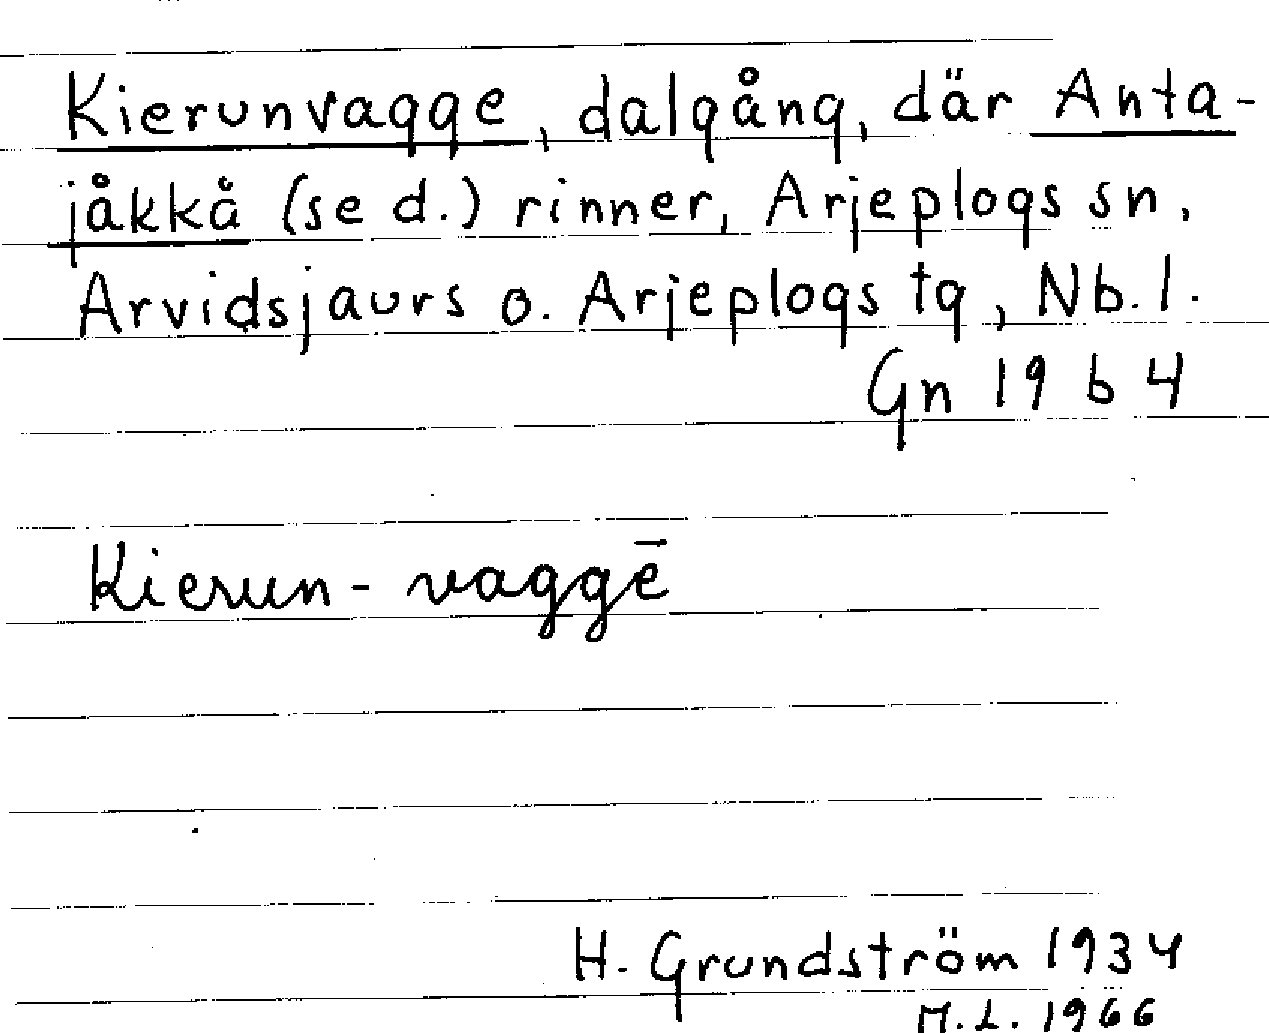 Kierunvagge, dalgång, där Anta-
jåkkå (se d.) rinner, Arjeplogs sn,
Arvidsjaurs o. Arjeplogs tg, Nb. l.
Gn 19 b 4
Kierun-vaggē
H. Grundström 1934
M.L. 1966